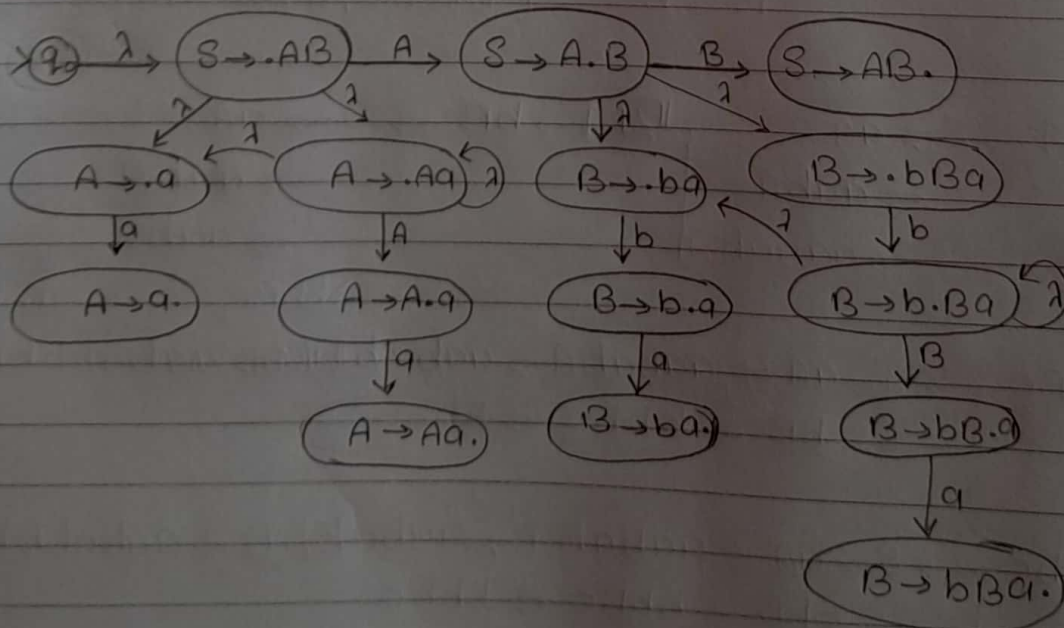 q₀ λ S→.AB A S→A.B B S→AB.
λ λ λ λ
A→.a λ A→.Aa λ B→.ba B→.bBa
a A b λ b
A→a. A→A.a B→b.a B→b.Ba λ
a a B
A→Aa. B→ba. B→bB.a
a
B→bBa.